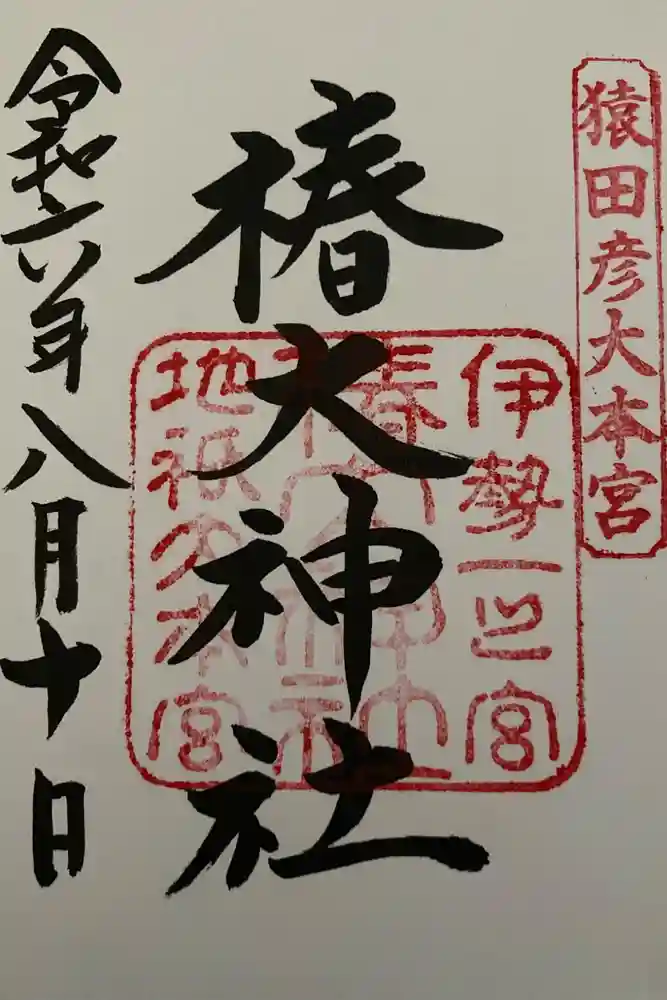 猿田彦大本宮
伊勢一之宮
椿大神社
地祇大本宮
椿大神社
令和六年八月十日